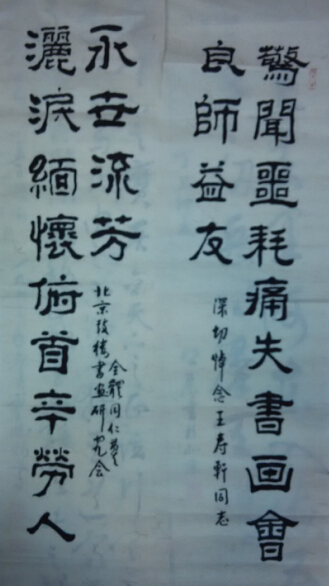 驚聞噩耗痛失書画會
良師益友
深切悼念王寿軒同志
灑淚緬懷俯首辛勞人
永世流芳
北京鼓楼書画研究会
全體同仁敬